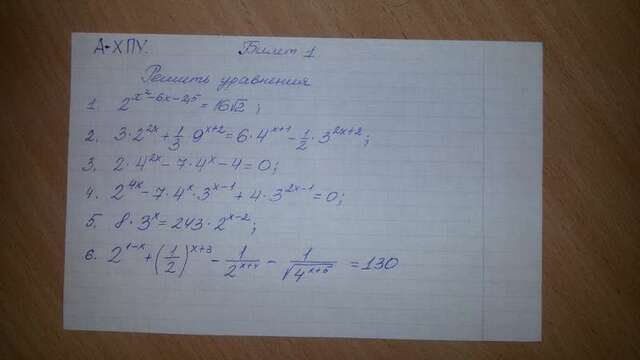 Д-ХПУ. Билет 1
Решить уравнения
1. 2^{x²-6x-2,5} = 16√2 ;
2. 3·2^{2x} + 1/3·9^{x+2} = 6·4^{x+1} - 1/2·3^{2x+2} ;
3. 2·4^{2x} - 7·4^x - 4 = 0;
4. 2^{4x} - 7·4^x·3^{x-1} + 4·3^{2x-1} = 0;
5. 8·3^x = 243·2^{x-2} ;
6. 2^{1-x} + (1/2)^{x+3} - 1/2^{x+4} - 1/√(4^{x+5}) = 130